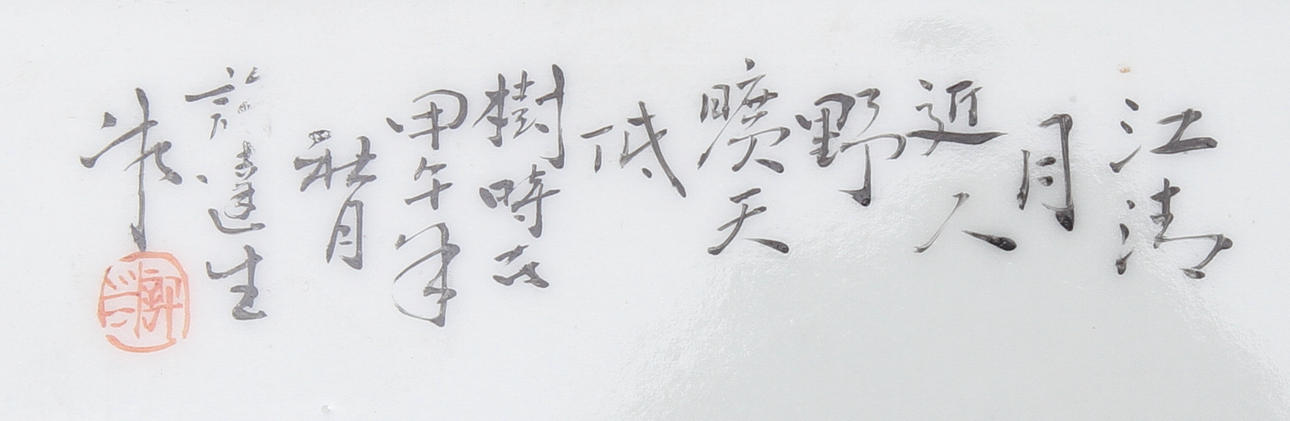 江清
月
近人
野
曠天
低
樹時在
甲午年
秋月
許達生